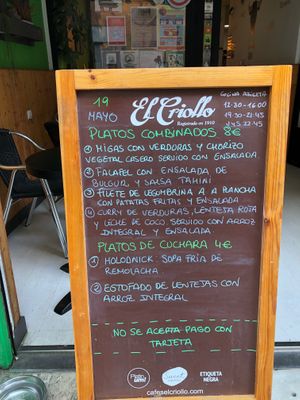 19
MAYO
El Criollo
Registrado en 1910
COCINA ABIERTA
12:30-16:00
19:30-21:45
PLATOS COMBINADOS 8€
1 MIGAS CON VERDURAS Y CHORIZO
VEGETAL CASERO SERVIDO CON ENSALADA.
2 FALAFEL CON ENSALADA DE
BULGUR Y SALSA TAHINI
3 FILETE DE LEGUMBRINA A LA PLANCHA
CON PATATAS FRITAS Y ENSALADA
4 CURRY DE VERDURAS, LENTEJA ROJA
Y LECHE DE COCO, SERVIDO CON ARROZ
INTEGRAL Y ENSALADA
PLATOS DE CUCHARA 4€
1 HOLODNICK: SOPA FRÍA DE
REMOLACHA
2 ESTOFADO DE LENTEJAS CON
ARROZ INTEGRAL
NO SE ACEPTA PAGO CON
TARJETA
ETIQUETA
NEGRA
cafeselcriollo.com